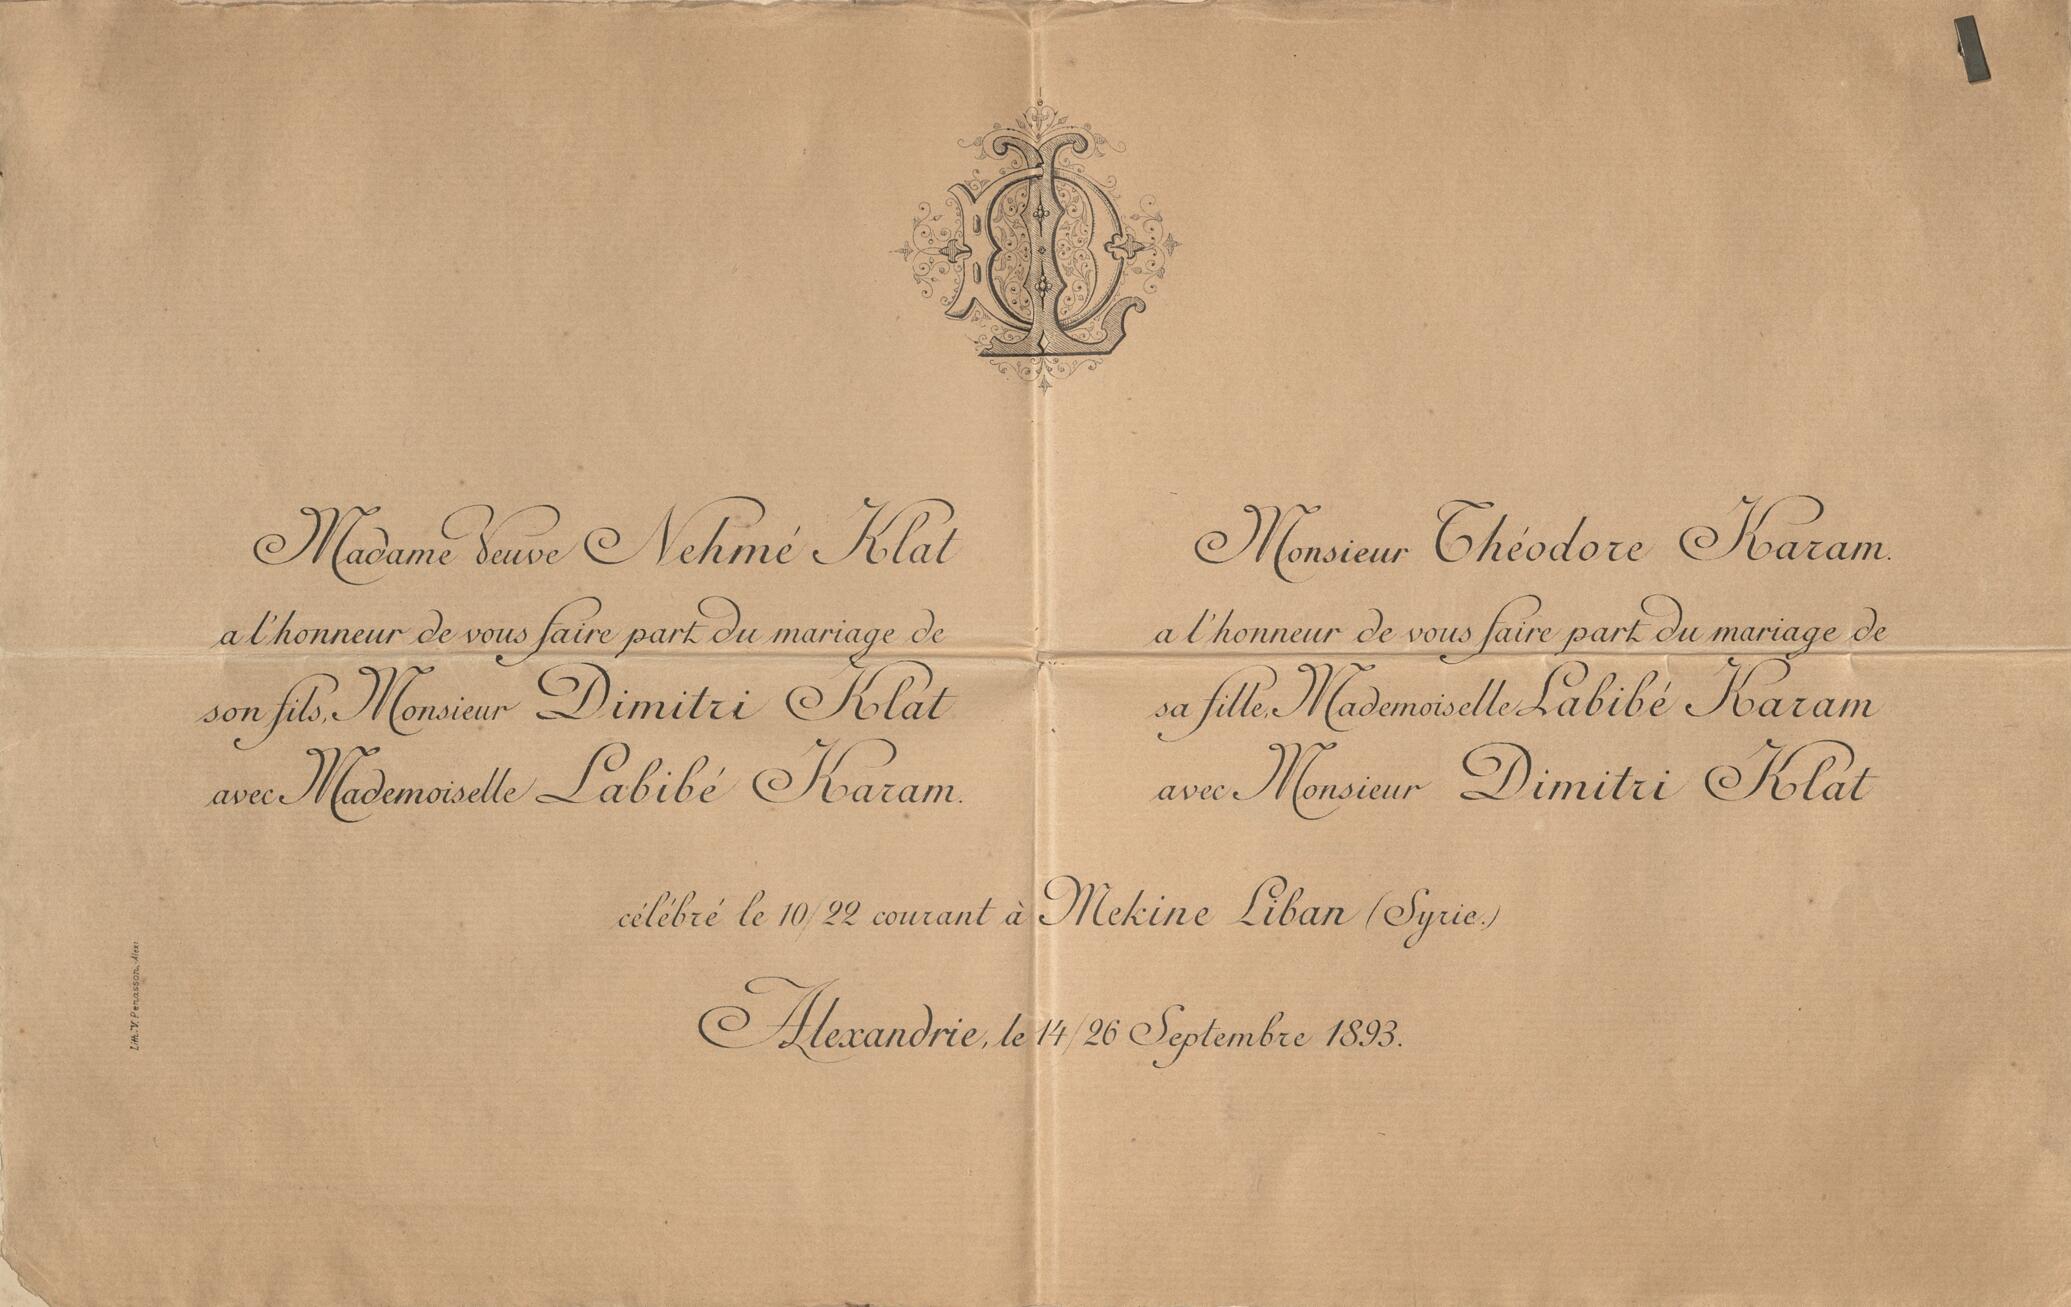 DL
Madame Veuve Nehmé Klat
a l'honneur de vous faire part du mariage de
son fils, Monsieur Dimitri Klat
avec Mademoiselle Labibé Karam.
Monsieur Théodore Karam.
a l'honneur de vous faire part du mariage de
sa fille, Mademoiselle Labibé Karam
avec Monsieur Dimitri Klat
célébré le 10/22 courant à Mekine Liban (Syrie.)
Alexandrie, le 14/26 Septembre 1893.
Lith. V. Penasson, Alex.